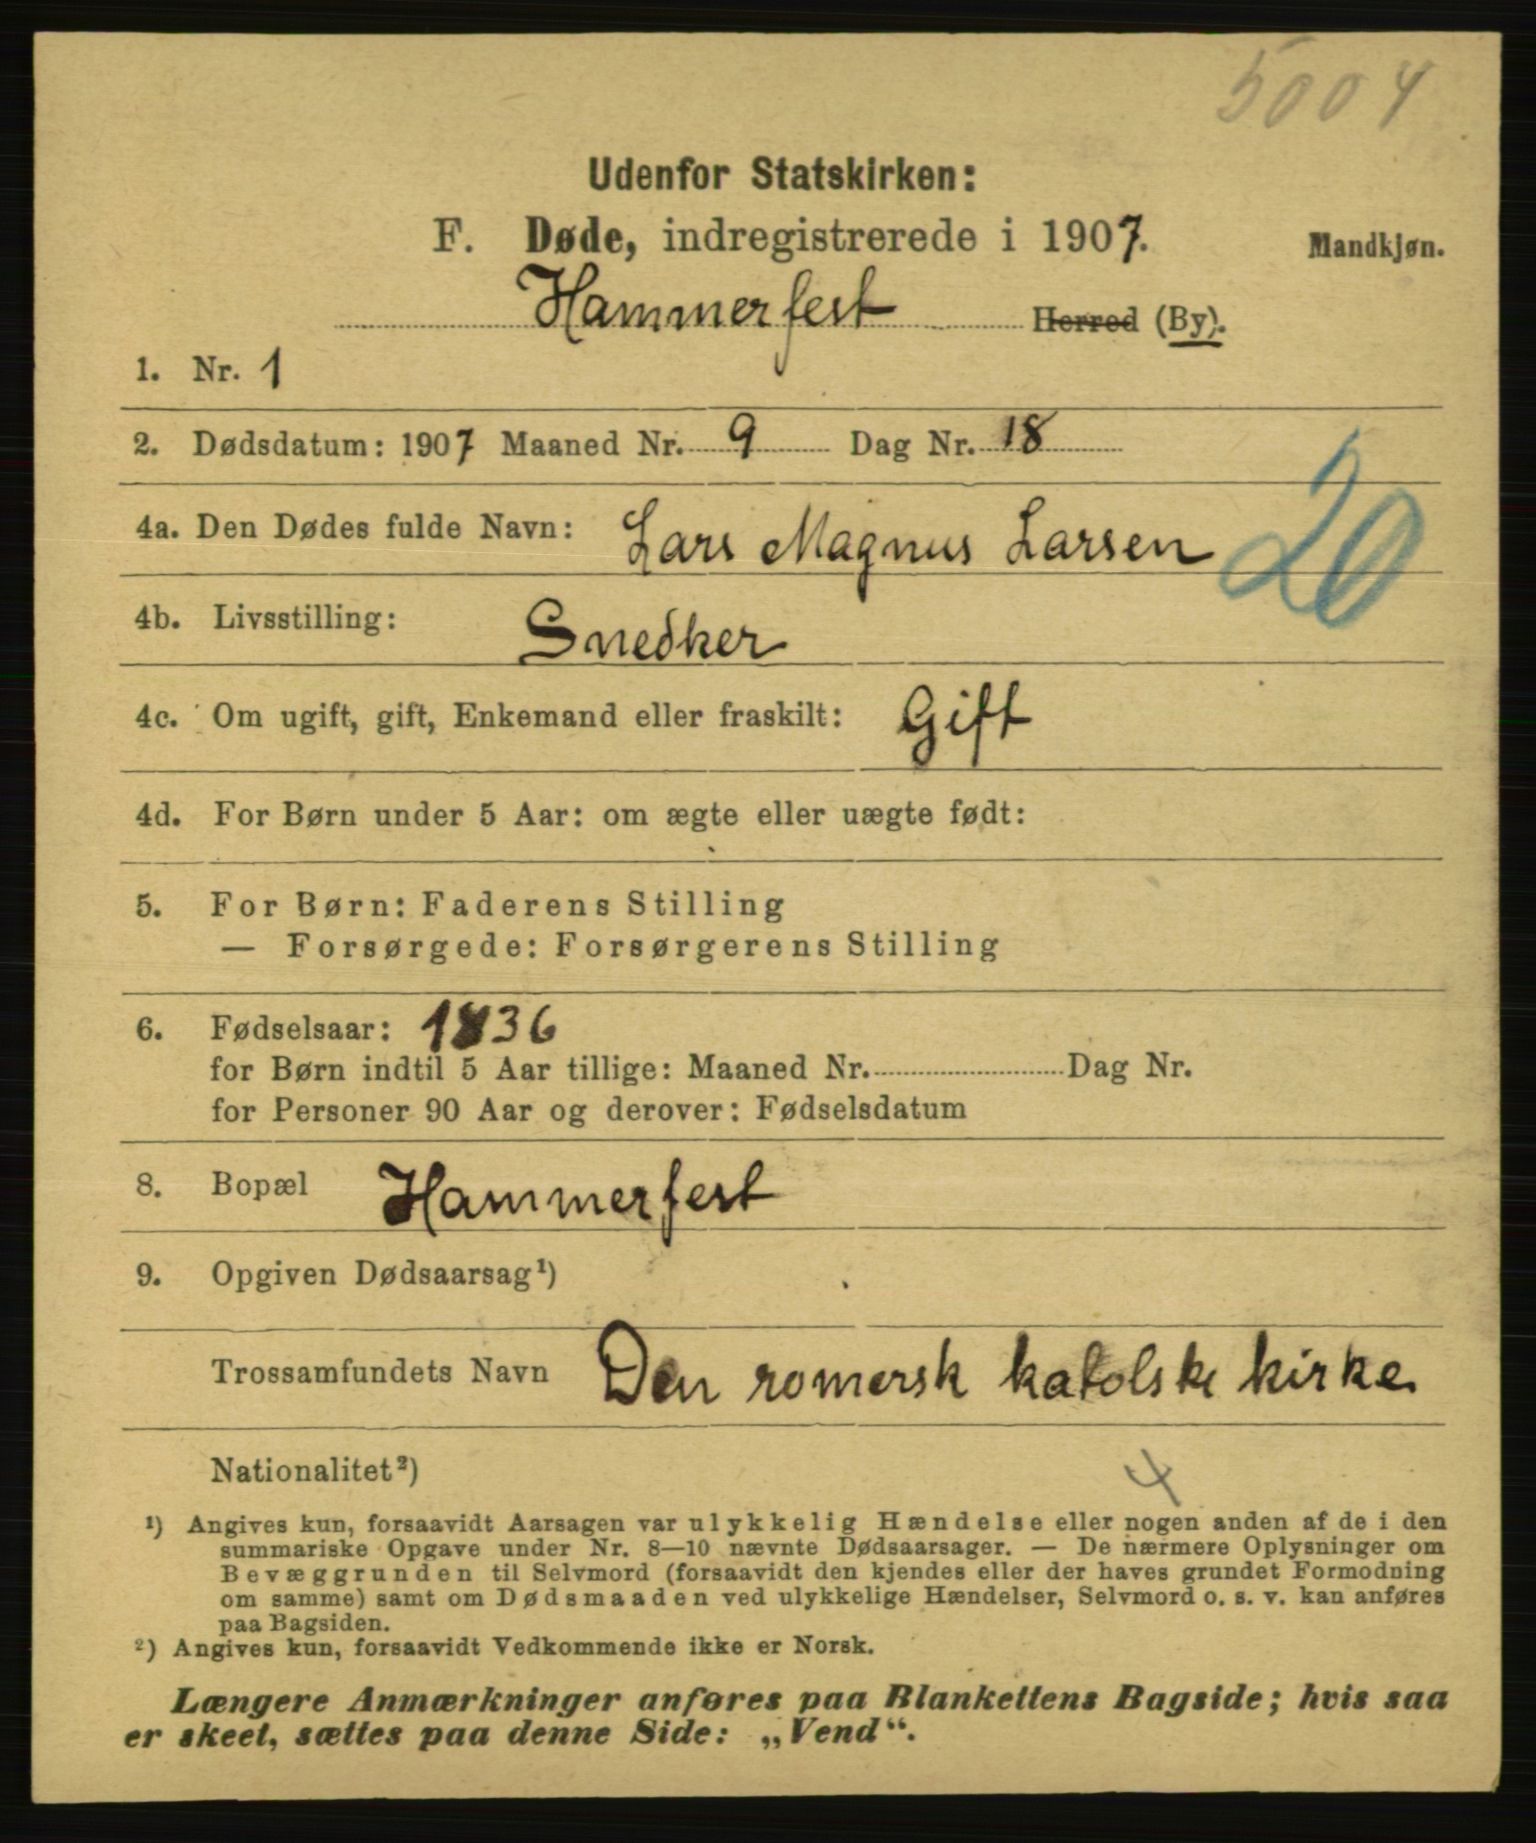 5004
Udenfor Statskirken:
F. Døde, indregistrerede i 1907. Mandkjøn.
Hammerfest Herred (By).
1. Nr. 1
2. Dødsdatum: 1907 Maaned Nr. 9 Dag Nr. 18
20
4a. Den Dødes fulde Navn: Lars Magnus Larsen
4b. Livsstilling: Snedker
4c. Om ugift, gift, Enkemand eller fraskilt: Gift
4d. For Børn under 5 Aar: om ægte eller uægte født:
5. For Børn: Faderens Stilling
— Forsørgede: Forsørgerens Stilling
6. Fødselsaar: 1836
for Børn indtil 5 Aar tillige: Maaned Nr. Dag Nr.
for Personer 90 Aar og derover: Fødselsdatum
8. Bopæl Hammerfest
9. Opgiven Dødsaarsag¹)
Trossamfundets Navn Den romersk katolske kirke.
Nationalitet²) 4
¹) Angives kun, forsaavidt Aarsagen var ulykkelig Hændelse eller nogen anden af de i den
summariske Opgave under Nr. 8—10 nævnte Dødsaarsager. — De nærmere Oplysninger om
Bevæggrunden til Selvmord (forsaavidt den kjendes eller der haves grundet Formodning
om samme) samt om Dødsmaaden ved ulykkelige Hændelser, Selvmord o. s. v. kan anføres
paa Bagsiden.
²) Angives kun, forsaavidt Vedkommende ikke er Norsk.
Længere Anmærkninger anføres paa Blankettens Bagside; hvis saa
er skeet, sættes paa denne Side: „Vend“.